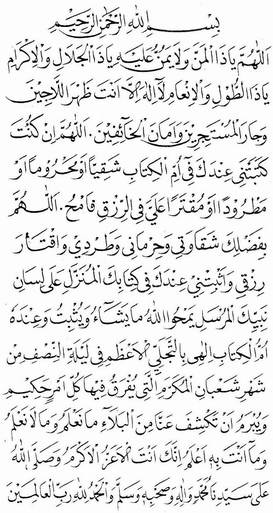 بِسْمِ اللهِ الرَّحْمٰنِ الرَّحِيْمِ
اَللّٰهُمَّ يَاذَا الْمَنِّ وَلَا يُمَنُّ عَلَيْهِ يَاذَا الْجَلَالِ وَالْاِكْرَامِ
يَاذَا الطَّوْلِ وَالْاِنْعَامِ لَااِلٰهَ اِلَّا اَنْتَ ظَهْرَ اللَّاجِيْنَ
وَجَارَ الْمُسْتَجِيْرِيْنَ وَاَمَانَ الْخَائِفِيْنَ. اَللّٰهُمَّ اِنْ كُنْتَ
كَتَبْتَنِيْ عِنْدَكَ فِيْ اُمِّ الْكِتَابِ شَقِيًّا اَوْمَحْرُوْمًا اَوْ
مَطْرُوْدًا اَوْمُقْتَرًّا عَلَيَّ فِى الرِّزْقِ فَامْحُ. اَللّٰهُمَّ
بِفَضْلِكَ شَقَاوَتِيْ وَحِرْمَانِيْ وَطَرْدِيْ وَاقْتَارَ
رِزْقِيْ وَاَثْبِتْنِيْ عِنْدَكَ فِيْ كِتَابِكَ الْمُنَزَّلِ عَلَى لِسَانِ
نَبِيِّكَ الْمُرْسَلِ يَمْحُوا اللهُ مَايَشَآءُ وَيُثْبِتُ وَعِنْدَهُ
اُمُّ الْكِتَابِ اِلٰهِيْ بِالتَّجَلِّى الْاَعْظَمِ فِيْ لَيْلَةِ النِّصْفِ مِنْ
شَهْرِ شَعْبَانَ الْمُكَرَّمِ الَّتِيْ يُفْرَقُ فِيْهَا كُلُّ اَمْرٍ حَكِيْمٍ
وَيُبْرَمُ اَنْ تَكْشِفَ عَنَّا مِنَ الْبَلَآءِ مَا نَعْلَمُ وَمَا لَا نَعْلَمُ
وَمَا اَنْتَ بِهِ اَعْلَمُ اِنَّكَ اَنْتَ الْاَعَزُّ الْاَكْرَمُ وَصَلَّى اللهُ
عَلَى سَيِّدِنَا مُحَمَّدٍ وَاٰلِهِ وَصَحْبِهِ وَسَلَّمَ وَالْحَمْدُ لِلّٰهِ رَبِّ الْعَالَمِيْنَ